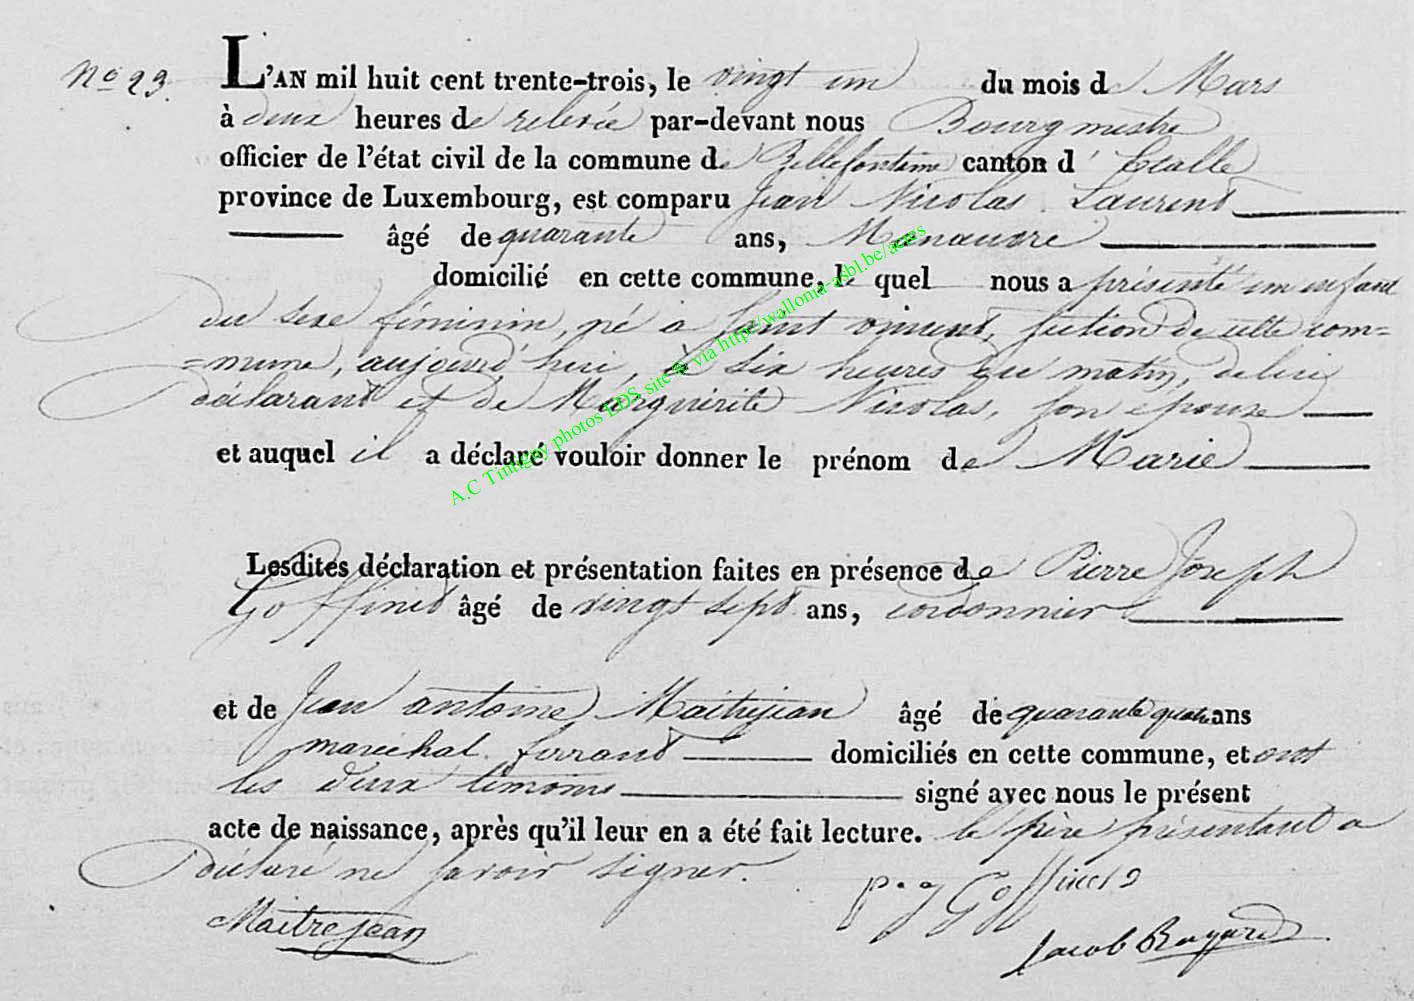 No 23. L'AN mil huit cent trente-trois, le vingt un du mois de Mars
à deux heures de relevée par-devant nous Bourgmestre
officier de l'état civil de la commune de Bellefontaine canton d' Etalle
province de Luxembourg, est comparu Jean Nicolas Laurent
âgé de quarante ans, Manœuvre
domicilié en cette commune, le quel nous a présenté un enfant
du sexe féminin, né à Saint vincent, section de cette com=
=mune, aujourd'hui, à six heures du matin, de lui
déclarant et de Marguerite Nicolas, son épouse
et auquel il a déclaré vouloir donner le prénom de Marie
A.C Tintigny photos EDS site via http://wallonia-asbl.be/actes
Lesdites déclaration et présentation faites en présence de Pierre Joseph
Goffinet âgé de vingt sept ans, cordonnier
et de Jean antoine Maitrejean âgé de quarante quatre ans
maréchal ferrant domiciliés en cette commune, et ont
les deux témoins signé avec nous le présent
acte de naissance, après qu'il leur en a été fait lecture. le père présentant a
déclaré ne savoir signer.
p. j Goffinet
Maitrejean
Jacob